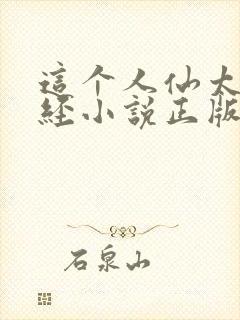 這个人仙太
經小說正版
石泉山